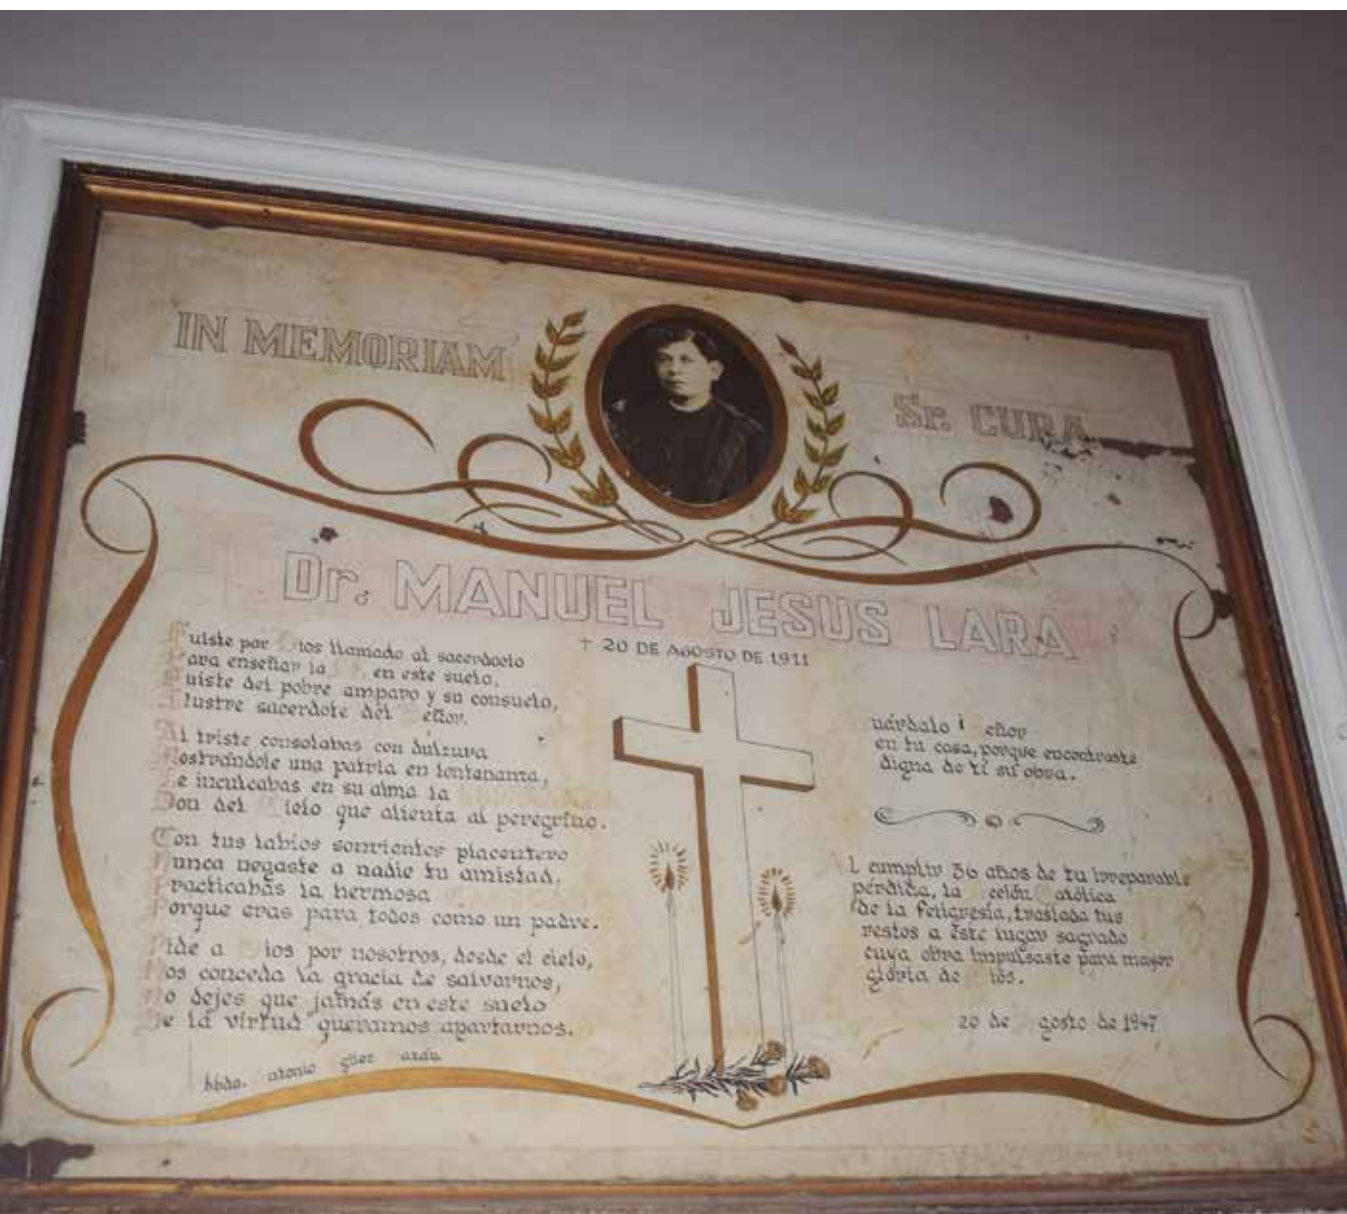 IN MEMORIAM
Sr. CURA
Dr. MANUEL JESUS LARA
† 20 DE AGOSTO DE 1911
Fuiste por Dios llamado al sacerdocio
Para enseñar la en este suelo,
Fuiste del pobre amparo y su consuelo,
Ilustre sacerdote del Señor.
Al triste consolabas con dulzura
Mostrándole una patria en lontananza,
Le inculcabas en su alma la
Don del Cielo que alienta al peregrino.
Con tus labios sonrientes placentero
Nunca negaste a nadie tu amistad.
Practicabas la hermosa
Porque eras para todos como un padre.
Pide a Dios por nosotros, desde el cielo,
Nos conceda la gracia de salvarnos,
No dejes que jamás en este suelo
De la virtud queramos apartarnos.
bbdo.
Guárdalo ¡ Señor
en tu casa, porque encontraste
digna de tí su obra.
Al cumplir 36 años de tu irreparable
pérdida, la Católica
de la feligresía, traslada tus
restos a éste lugar sagrado
cuya obra impulsaste para mayor
glória de Diós.
20 de Agosto de 1947